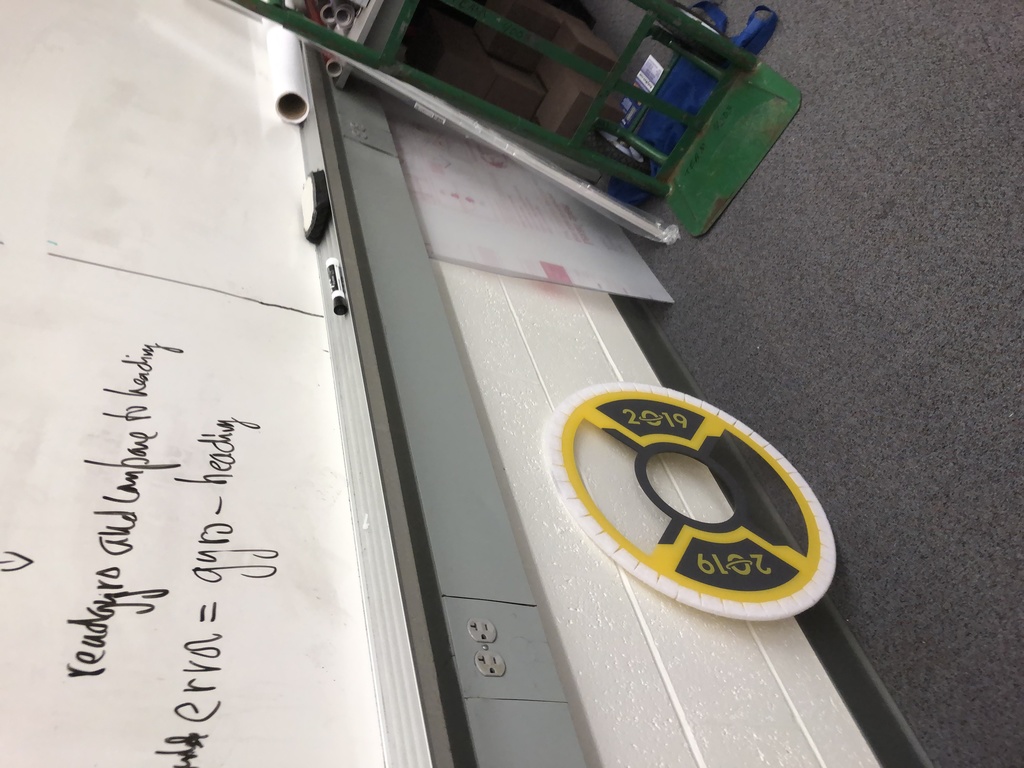 readgyro and compare to heading
error = gyro - heading
2019
2019